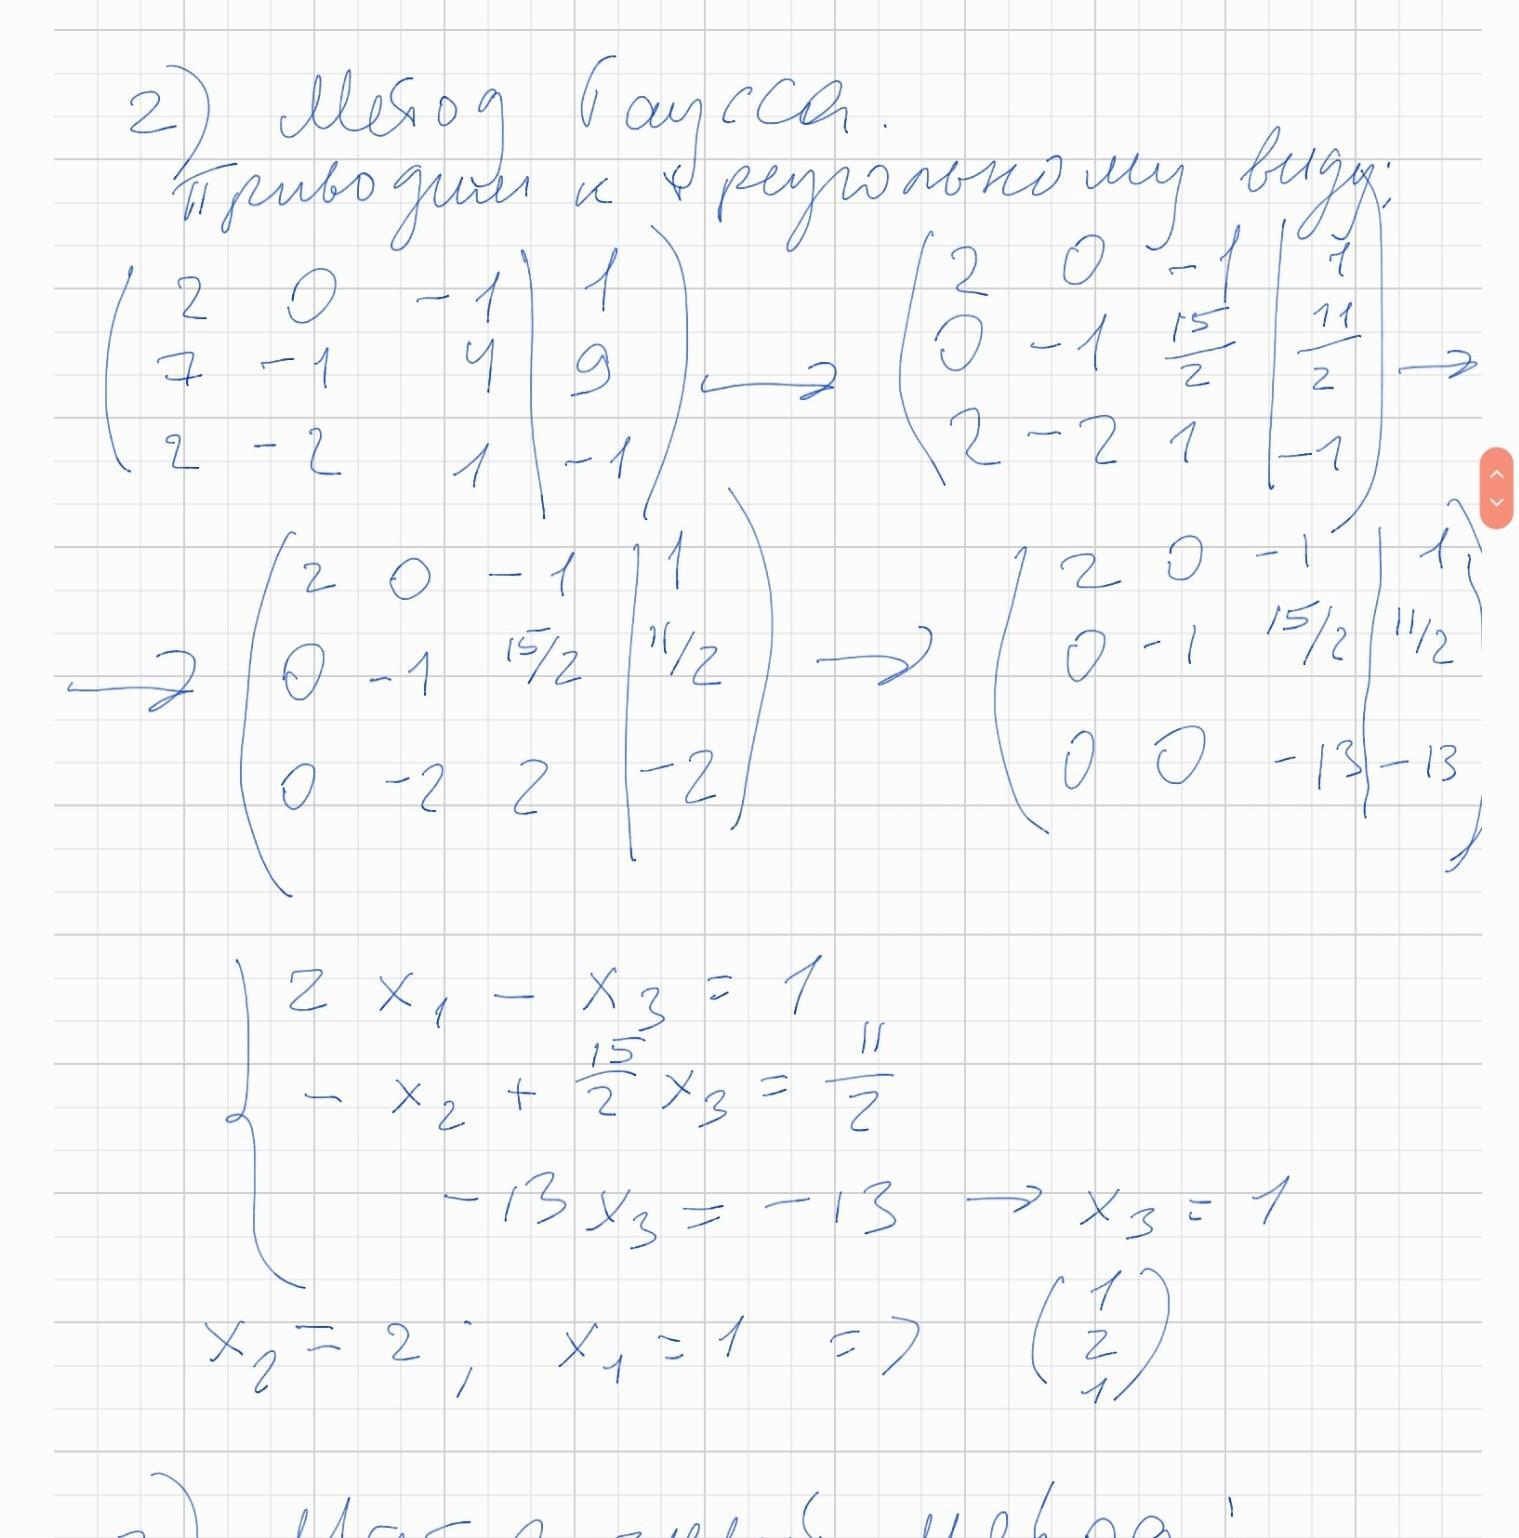 2) Метод Гаусса.
Приводим к треугольному виду:
( 2 0 -1 | 1 ; 7 -1 4 | 9 ; 2 -2 1 | -1 ) → ( 2 0 -1 | 1 ; 0 -1 15/2 | 11/2 ; 2 -2 1 | -1 ) →
→ ( 2 0 -1 | 1 ; 0 -1 15/2 | 11/2 ; 0 -2 2 | -2 ) → ( 2 0 -1 | 1 ; 0 -1 15/2 | 11/2 ; 0 0 -13 | -13 )
{ 2 x₁ - x₃ = 1
- x₂ + 15/2 x₃ = 11/2
-13 x₃ = -13 → x₃ = 1
x₂ = 2 ; x₁ = 1 => ( 1 2 1 )